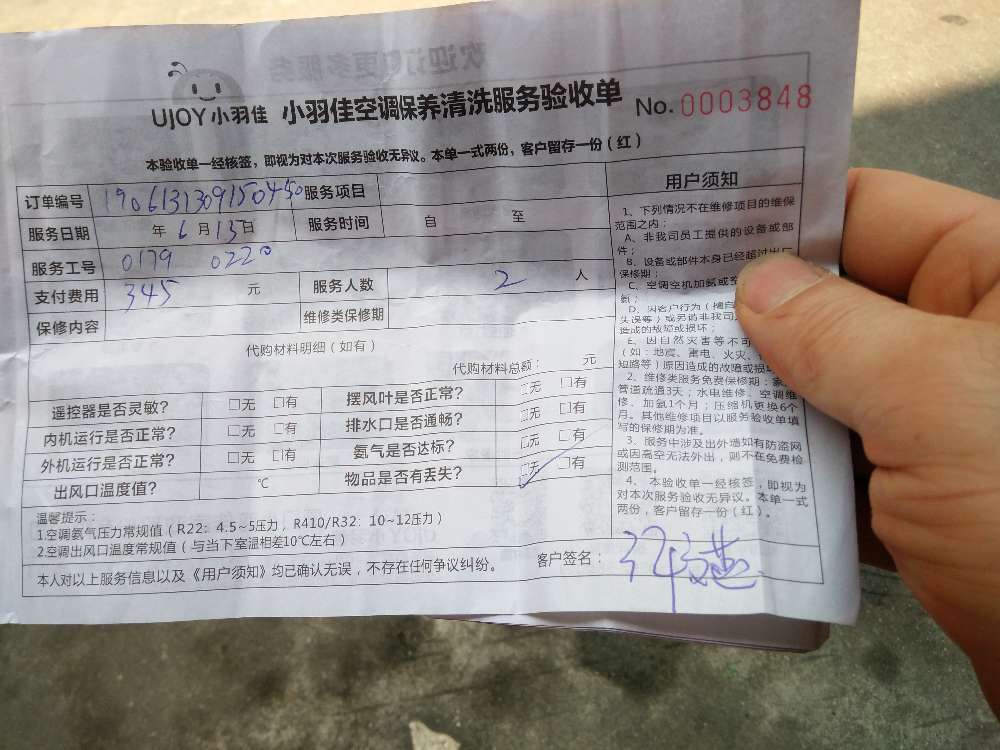 UJOY 小羽佳 小羽佳空调保养清洗服务验收单 No.0003848
本验收单一经核签，即视为对本次服务验收无异议。本单一式两份，客户留存一份（红）
订单编号 190613130915045 服务项目
服务日期 年 6 月 13 日 服务时间 自 至
服务工号 0179 0220
支付费用 345 元 服务人数 2 人
保修内容 维修类保修期
代购材料明细（如有）
代购材料总额： 元
遥控器是否灵敏？ □无 □有 摆风叶是否正常？ □无 □有
内机运行是否正常？ □无 □有 排水口是否通畅？ □无 □有
外机运行是否正常？ □无 □有 氨气是否达标？ □无 □有
出风口温度值？ ℃ 物品是否有丢失？ □无 □有
温馨提示：
1.空调氨气压力常规值（R22：4.5~5压力，R410/R32：10~12压力）
2.空调出风口温度常规值（与当下室温相差10℃左右）
本人对以上服务信息以及《用户须知》均已确认无误，不存在任何争议纠纷。 客户签名：
用户须知
1、下列情况不在维修项目的维保
范围之内：
A、非我司员工提供的设备或部
件；
B、设备或部件本身已经超过出厂
保修期；
C、空调空机加氨或
氨；
D、因客户行为（擅自
失误等）或另请非我司
造成的故障或损坏；
E、因自然灾害等不可
（如：地震、雷电、火灾、
短路等）原因造成的故障或损坏
2、维修类服务免费保修期：家
管道疏通3天；水电维修、空调维
修、加氨1个月；压缩机更换6个
月。其他维修项目以服务验收单填
写的保修期为准。
3、服务中涉及出外墙如有防盗网
或因高空无法外出，则不在免费检
测范围。
4、本验收单一经核签，即视为
对本次服务验收无异议。本单一式
两份，客户留存一份（红）。